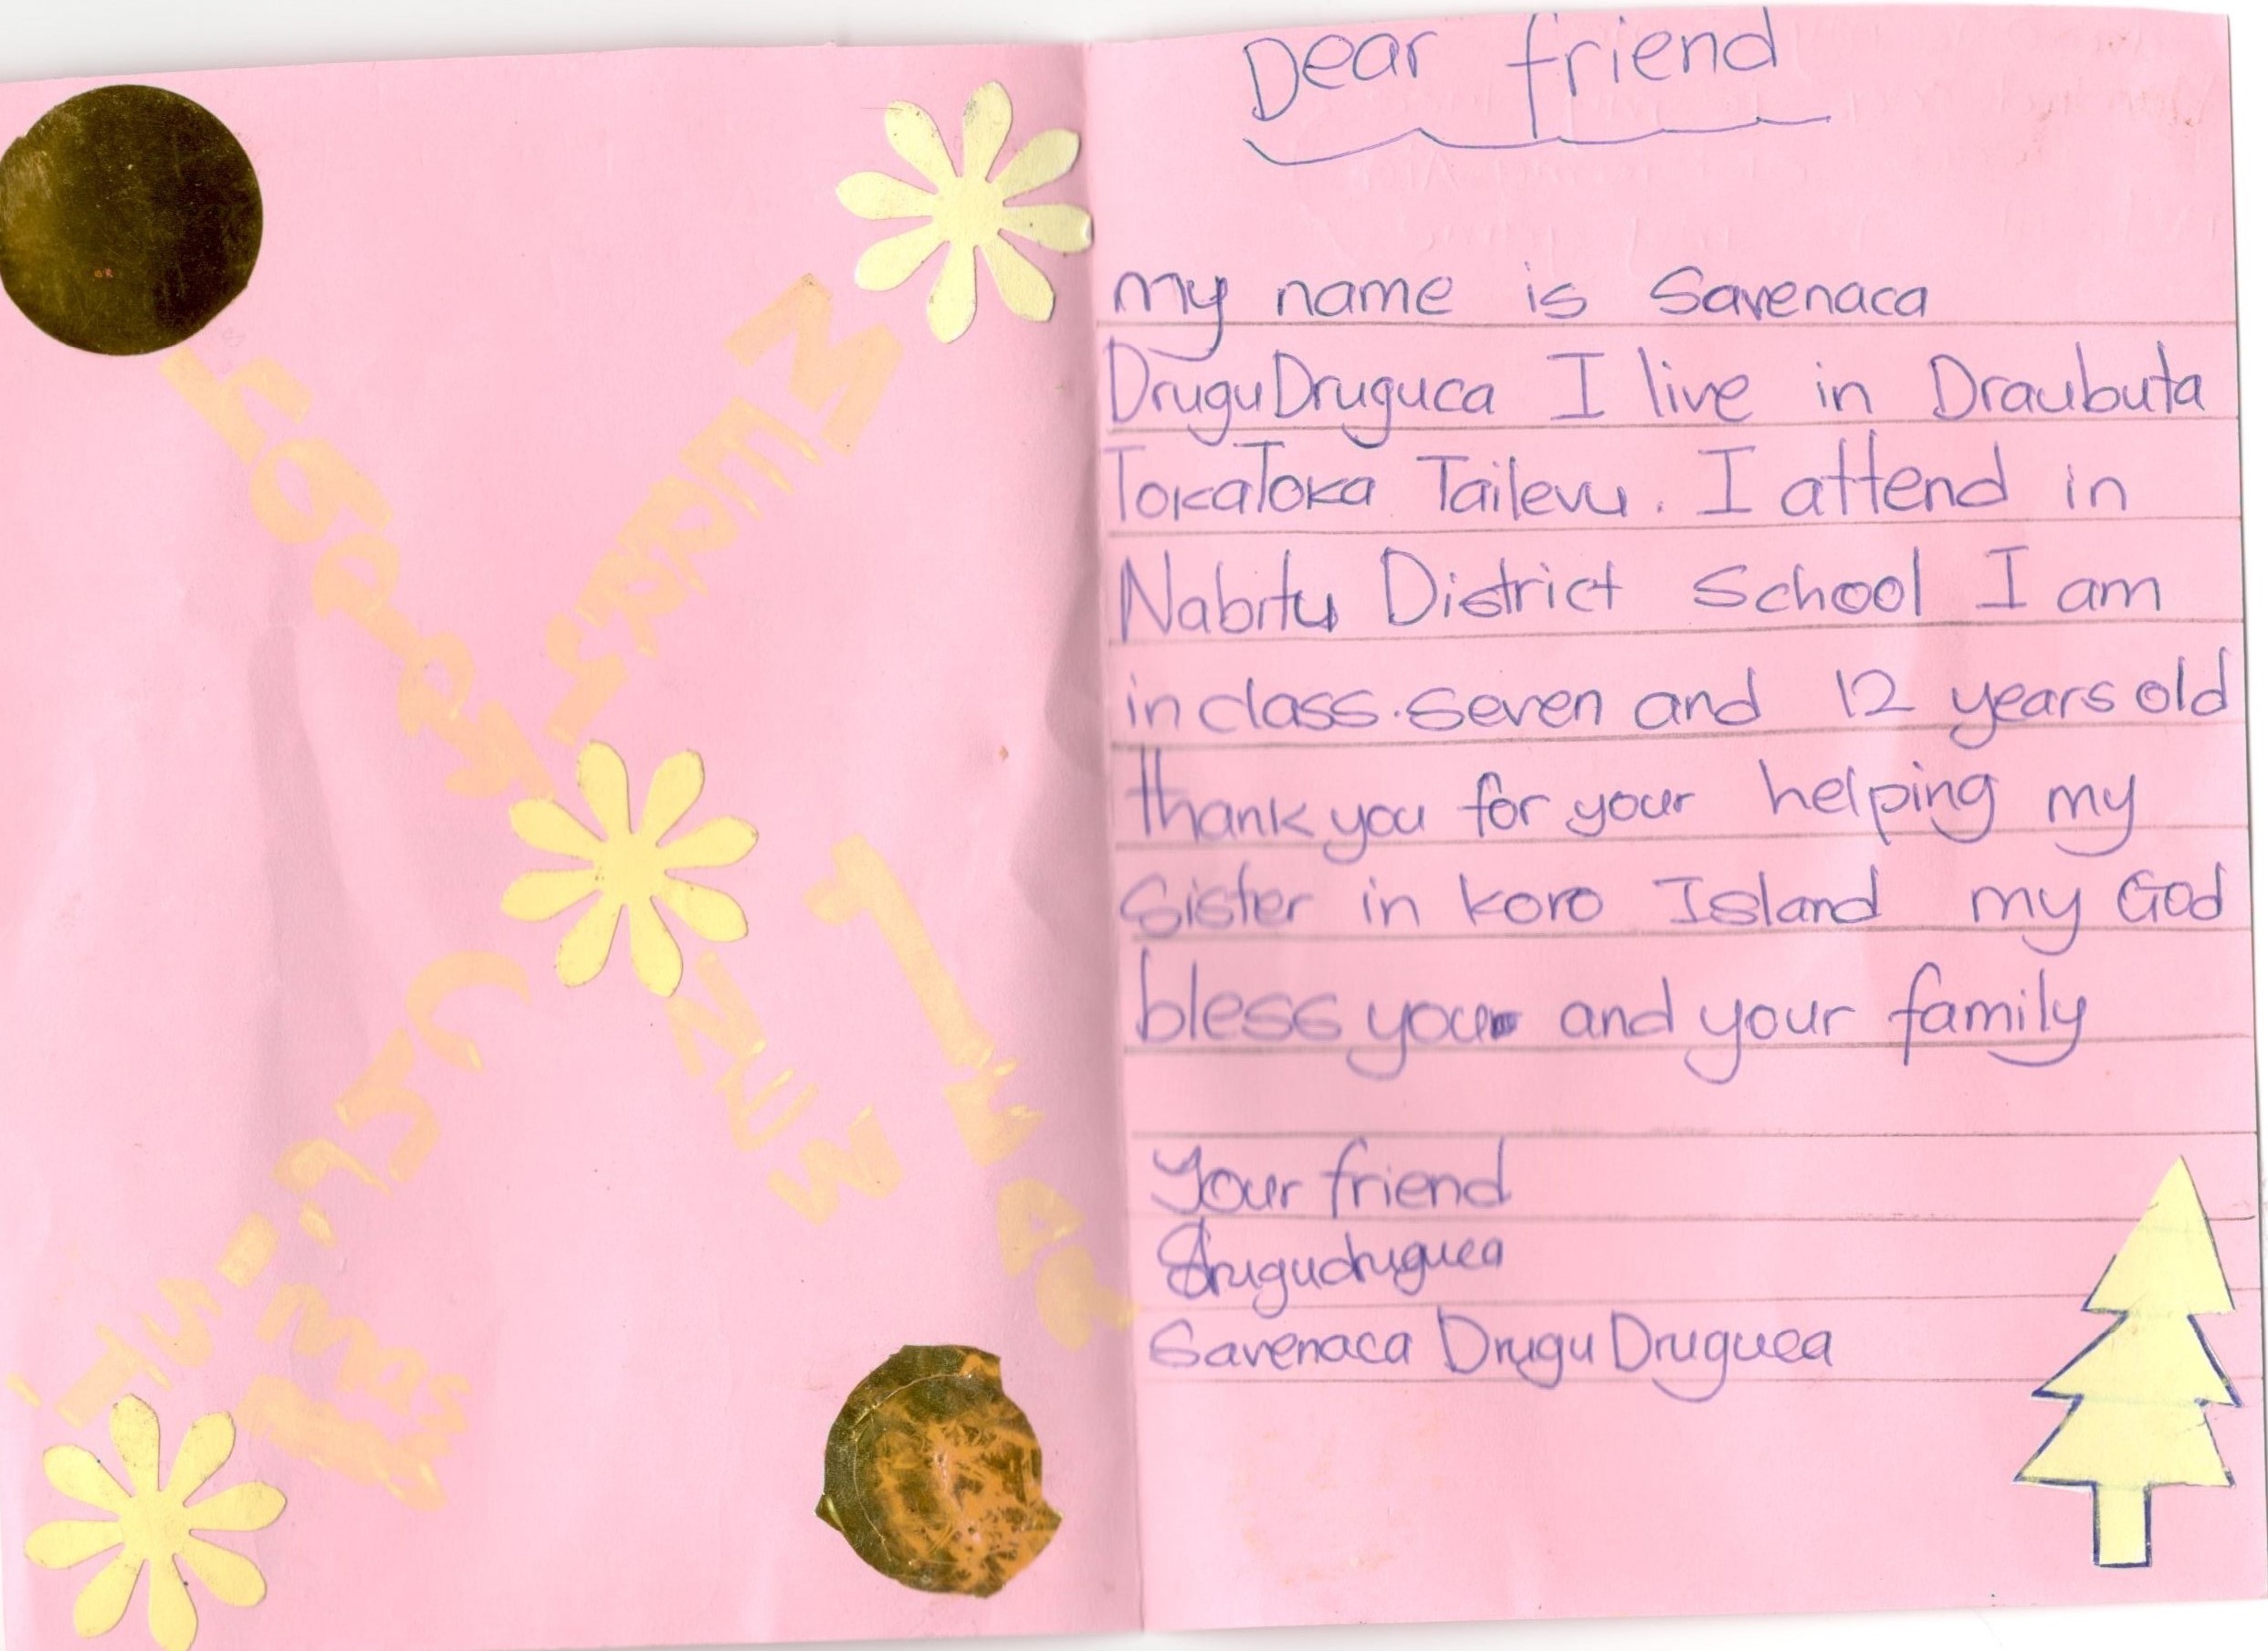 MERRY
happy
NEW
YEAR
Dear friend
my name is Savenaca
DruguDruguca I live in Draubuta
TokaToka Tailevu. I attend in
Nabitu District School I am
in class.seven and 12 years old
thank you for your helping my
Sister in koro Island my God
bless you and your family
Your friend
Savenaca DruguDruguca